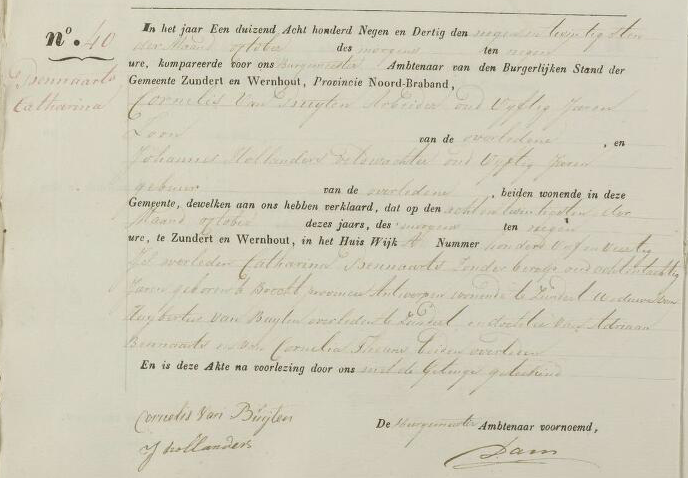 N.º 40
Bennaarts
Catharina
In het jaar Een duizend Acht honderd Negen en Dertig den negen en twintigsten
der Maand october des morgens ten negen
ure, kompareerde voor ons Burgemeester Ambtenaar van den Burgerlijken Stand der
Gemeente Zundert en Wernhout, Provincie Noord-Braband,
Cornelis Van Buijten Arbeider oud Vyftig Jaren
Zoon van de overledene, en
Johannes Hollanders Veldwachter oud Vyftig Jaren
gebuur van de overledene, beiden wonende in deze
Gemeente, dewelken aan ons hebben verklaard, dat op den acht en twintigsten der
Maand october dezes jaars, des morgens ten negen
ure, te Zundert en Wernhout, in het Huis Wijk A Nummer honderd Vyf en Veertig
is overleden Catharina Bennaarts Zonder beroep oud tachtig
Jaren geboren te provincie Antwerpen wonende te Zundert Weduwe van
Huybertus van Buyten overleden te Zundert, en dochter van Adriaan
Bennaarts en van Cornelia beiden overleden
En is deze Akte na voorlezing door ons met de Getuigen geteekend
Cornelis Van Buijten
J hollanders
De Burgemeester Ambtenaar voornoemd,
Dam